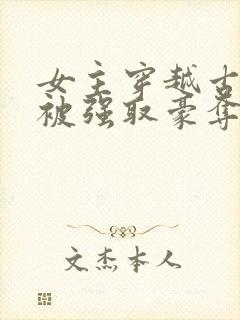 女主穿越古
被强取豪夺
文杰本人